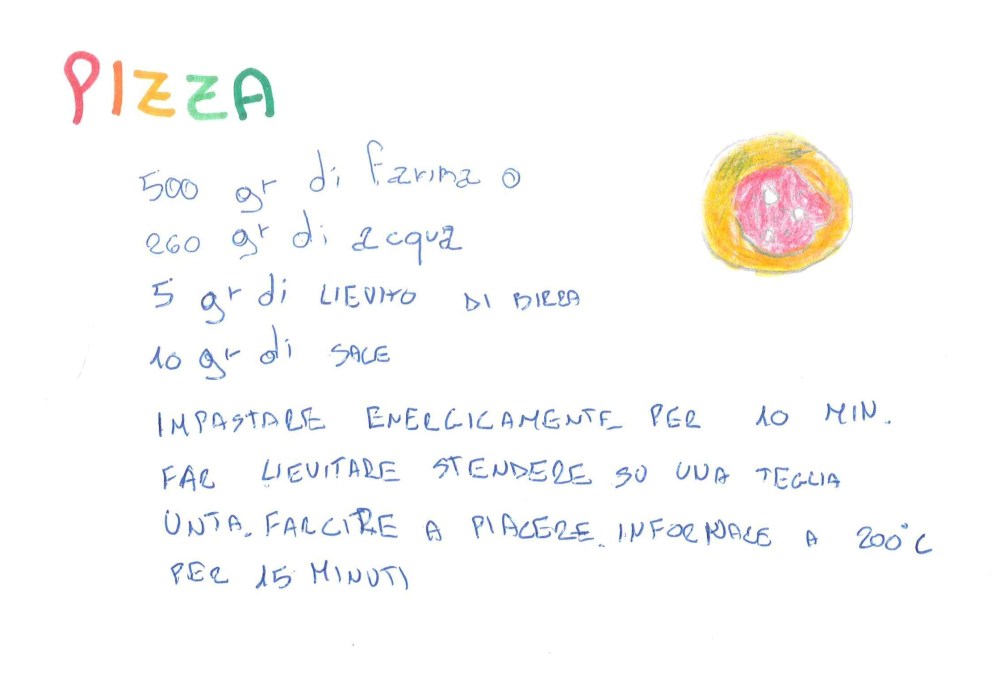 PIZZA
500 gr di farina 0
260 gr di acqua
5 gr di LIEVITO DI BIRRA
10 gr di SALE
IMPASTARE ENERGICAMENTE PER 10 MIN.
FAR LIEVITARE STENDERE SU UNA TEGLIA
UNTA. FARCIRE A PIACERE. INFORNARE A 200°C
PER 15 MINUTI